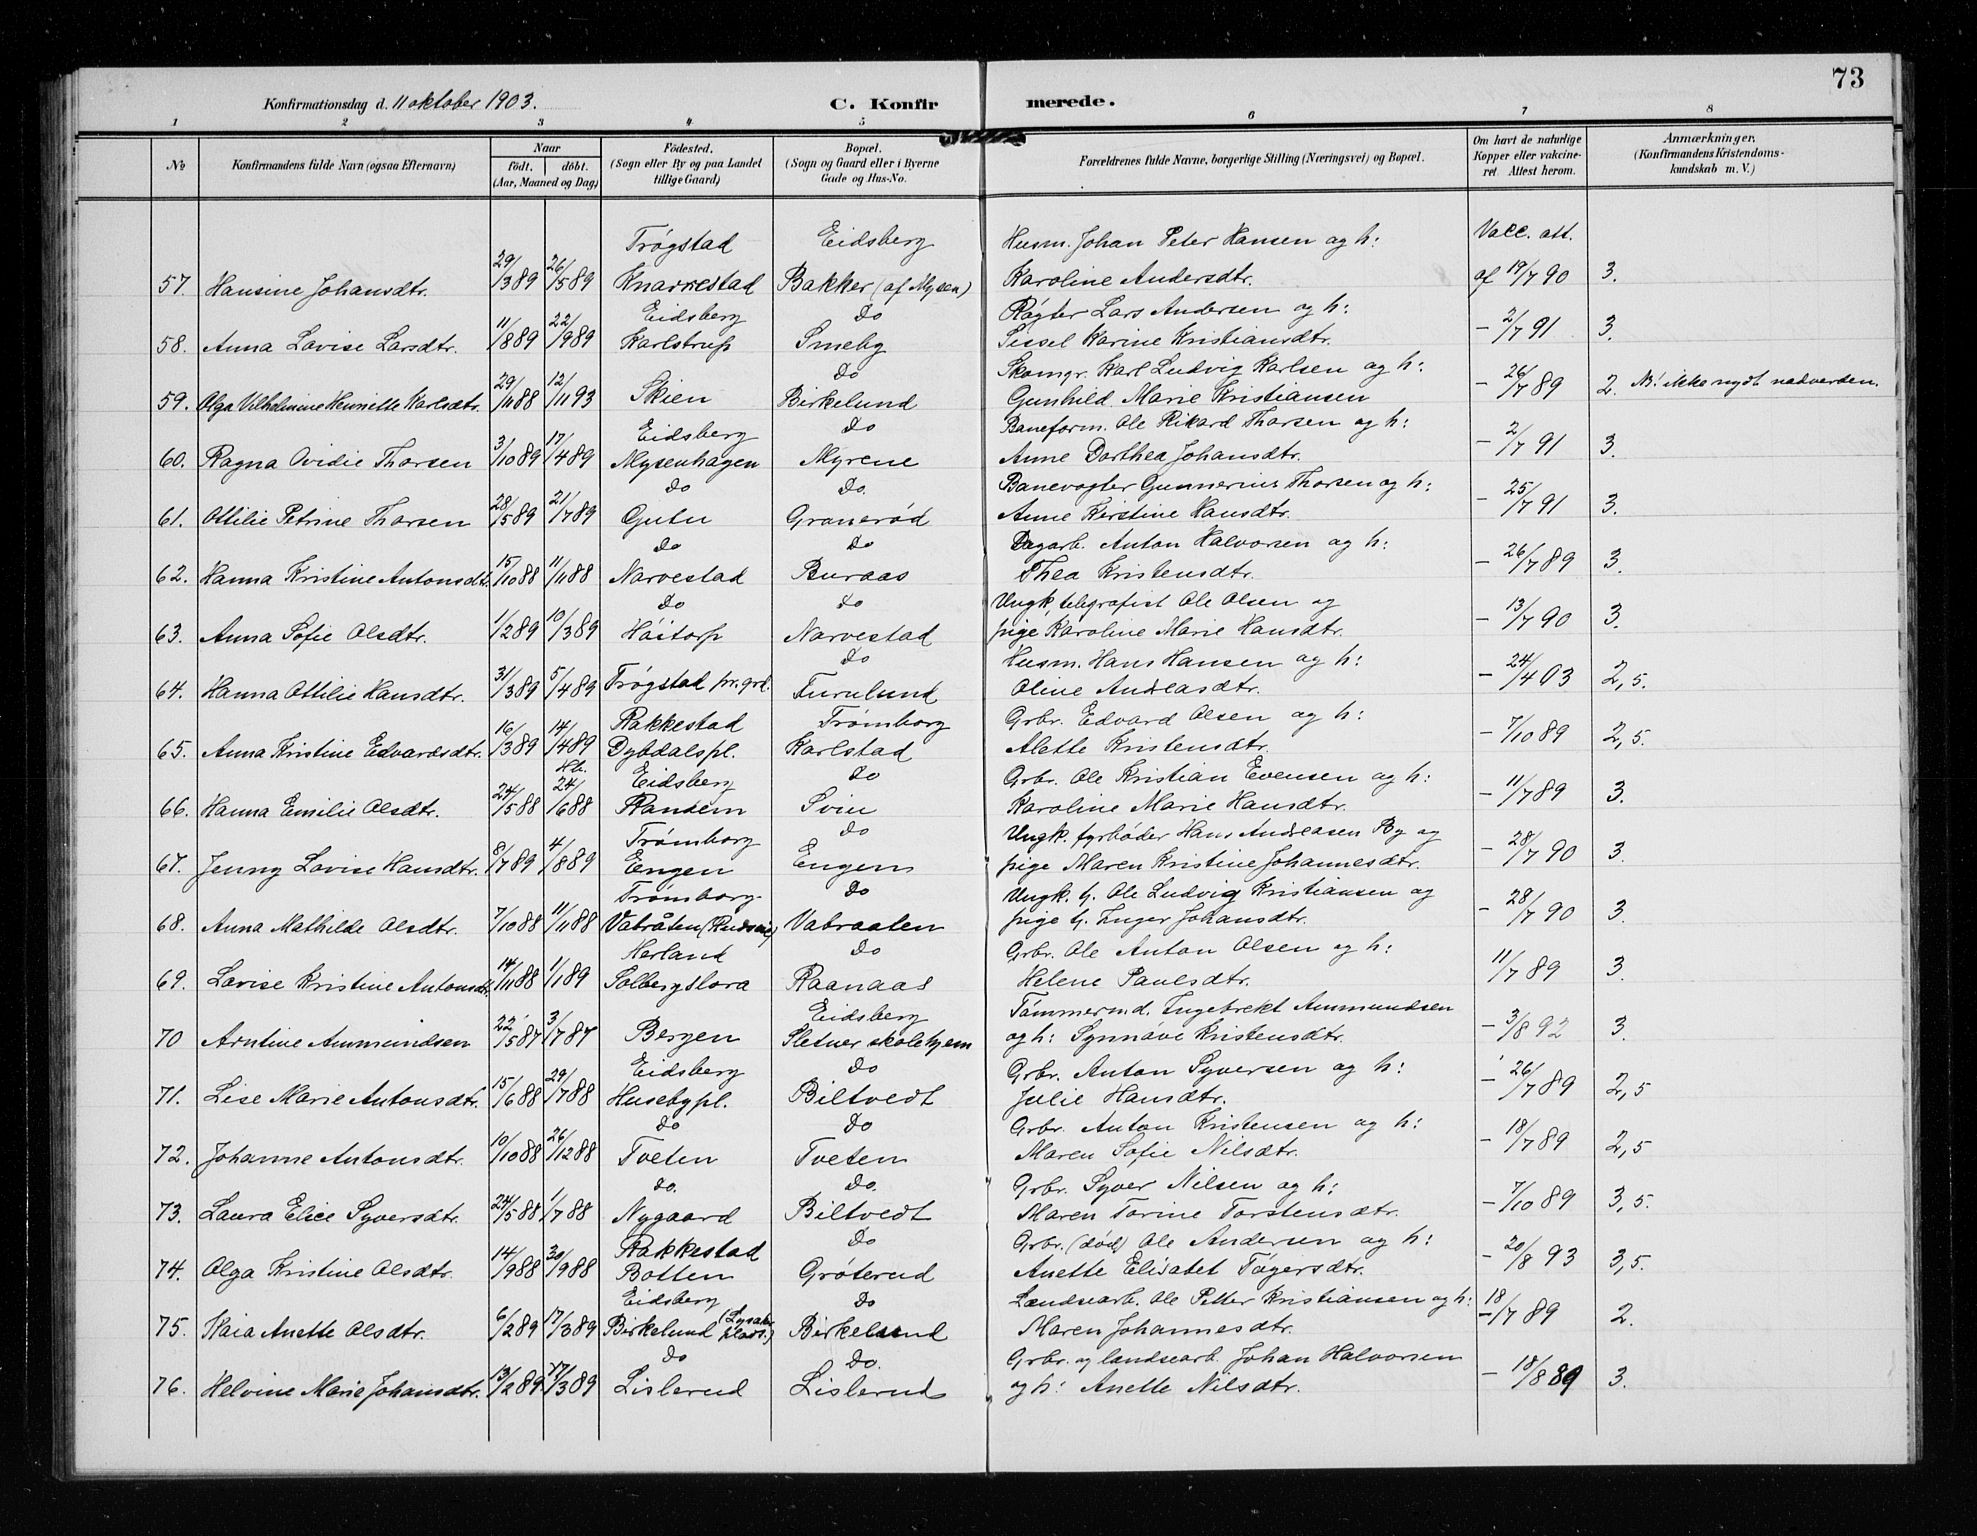 73
Konfirmationsdag d. 11 oktober 1903. C. Konfir merede.
1 2 3 4 5 6 7 8
No Konfirmandens fulde Navn (ogsaa Efternavn) Naar født. døbt. (Aar, Maaned og Dag) Fødested. (Sogn eller By og paa Landet tillige Gaard) Bopæl. (Sogn og Gaard eller i Byerne Gade og Hus-No. Forældrenes fulde Navne, borgerlige Stilling (Næringsvei) og Bopæl. Om havt de naturlige Kopper eller vakcineret. Attest herom. Anmærkninger. (Konfirmandens Kristendomskundskab m. V.)
Trøgstad Eidsberg Husm. Johan Peter Hansen og h: Vacc. att.
57. Hansine Johansdtr. 29/3 89 26/5 89 Knarrestad Bakker (af Mysen) Karoline Andersdtr. af 19/7 90 3.
Eidsberg do Røgter Lars Andersen og h:
58. Anna Lovise Larsdtr. 11/8 89 22/9 89 Karlstrup Smeby Sissel Karine Kristiansdtr. - 2/7 91 3.
do Skomgr. Karl Ludvig Karlsen og h:
59. Olga Vilhelmine Henriette Karlsdtr. 29/11 88 12/11 93 Skien Birkelund Gunhild Marie Kristiansen - 26/7 89 2. ikke nydt nadverden.
Eidsberg do Baneform. Ole Rikard Thorsen og h:
60. Ragna Ovidie Thorsen 3/10 89 17/4 89 Mysenhagen Myrene Anne Dorthea Johansdtr. - 2/7 91 3.
do do. Banevogter Gunnerius Thorsen og h:
61. Ottilie Petrine Thorsen 28/5 89 21/7 89 Gutu Granerød Anne Kirstine Hansdtr. - 25/7 91 3.
do do Dagarb. Anton Halvorsen og h:
62. Hanna Kristine Antonsdtr. 15/10 88 11/11 88 Narvestad Buraas Thea Kristensdtr. - 26/7 89 3.
do do Ungk, telegrafist Ole Olsen og
63. Anna Sofie Olsdtr. 1/2 89 10/3 89 Høitorp Narvestad pige Karoline Marie Hansdtr. - 13/7 90 3.
do Husm. Hans Hansen og h:
64. Hanna Ottilie Hansdtr. 31/3 89 5/4 89 Trøgstad pr. grd. Furulund Oline Andreasdtr. - 24/4 03 2,5.
Rakkestad Trømborg Grbr. Edvard Olsen og h:
65. Anna Kristine Edvardsdtr. 16/3 89 14/4 89 Dybdalspl. Karlstad Alette Kristensdtr. - 7/10 89 2,5.
Hb. Eidsberg do Grbr. Ole Kristian Evensen og h:
66. Hanna Emilie Olsdtr. 24/5 88 24/6 88 Randem Svin Karoline Marie Hansdtr. - 11/7 89 3.
Trømborg do Ungk. fyrbøder Hans Andreasen By og
67. Jenny Lovise Hansdtr. 8/7 89 4/8 89 Engen Engen pige Maren Kristine Johannesdtr. - 28/7 90 3.
Trømborg do Ungk. tj. Ole Ludvig Kristiansen og
68. Anna Mathilde Olsdtr. 7/10 88 11/11 88 Vatråten Vatraaten pige tj. Inger Johansdtr. - 28/7 90 3.
Herland do Grbr. Ole Anton Olsen og h:
69. Lovise Kristine Antonsdtr. 14/11 88 1/1 89 Solbergslora Raanaas Helene Paulsdtr. 11/7 89 3.
Eidsberg Tømmermd. Ingebrekt Ammundsen
70 Arntine Ammundsen 22/5 87 3/7 87 Bergen Sletner skolehjem og h: Synnøve Kristensdtr. - 3/8 92 3.
Eidsberg do Grbr. Anton Syversen og h:
71. Lise Marie Antonsdtr. 15/6 88 29/7 88 Husebypl. Biltvedt Julie Hansdtr. - 26/7 89 2,5
do do Grbr. Anton Kristensen og h:
72. Johanne Antonsdtr. 10/10 88 26/12 88 Tveten Tveten Maren Sofie Nilsdtr. - 18/7 89 2,5
do. do. Grbr. Syver Nilsen og h:
73. Laura Elise Syversdtr. 24/5 88 1/7 88 Nygaard Biltvedt Maren Torine Torstensdtr. - 7/10 89 3,5.
Rakkestad do Grbr. (død) Ole Andersen og h:
74. Olga Kristine Olsdtr. 14/9 88 30/9 88 Botten Grøterud Anette Elisabet Tøgersdtr. - 20/8 93 3,5.
Eidsberg do Landsearb. Ole Petter Kristiansen og h:
75. Kaia Anette Olsdtr. 6/2 89 17/3 89 Birkelund Birkelund Maren Johannesdtr. - 18/7 89 2.
do do. Grbr. og landsearb. Johan Halvorsen
76. Helvine Marie Johansdtr. 13/2 89 17/3 89 Lislerud Lislerud og h: Anette Nilsdtr. - 18/8 89 3.